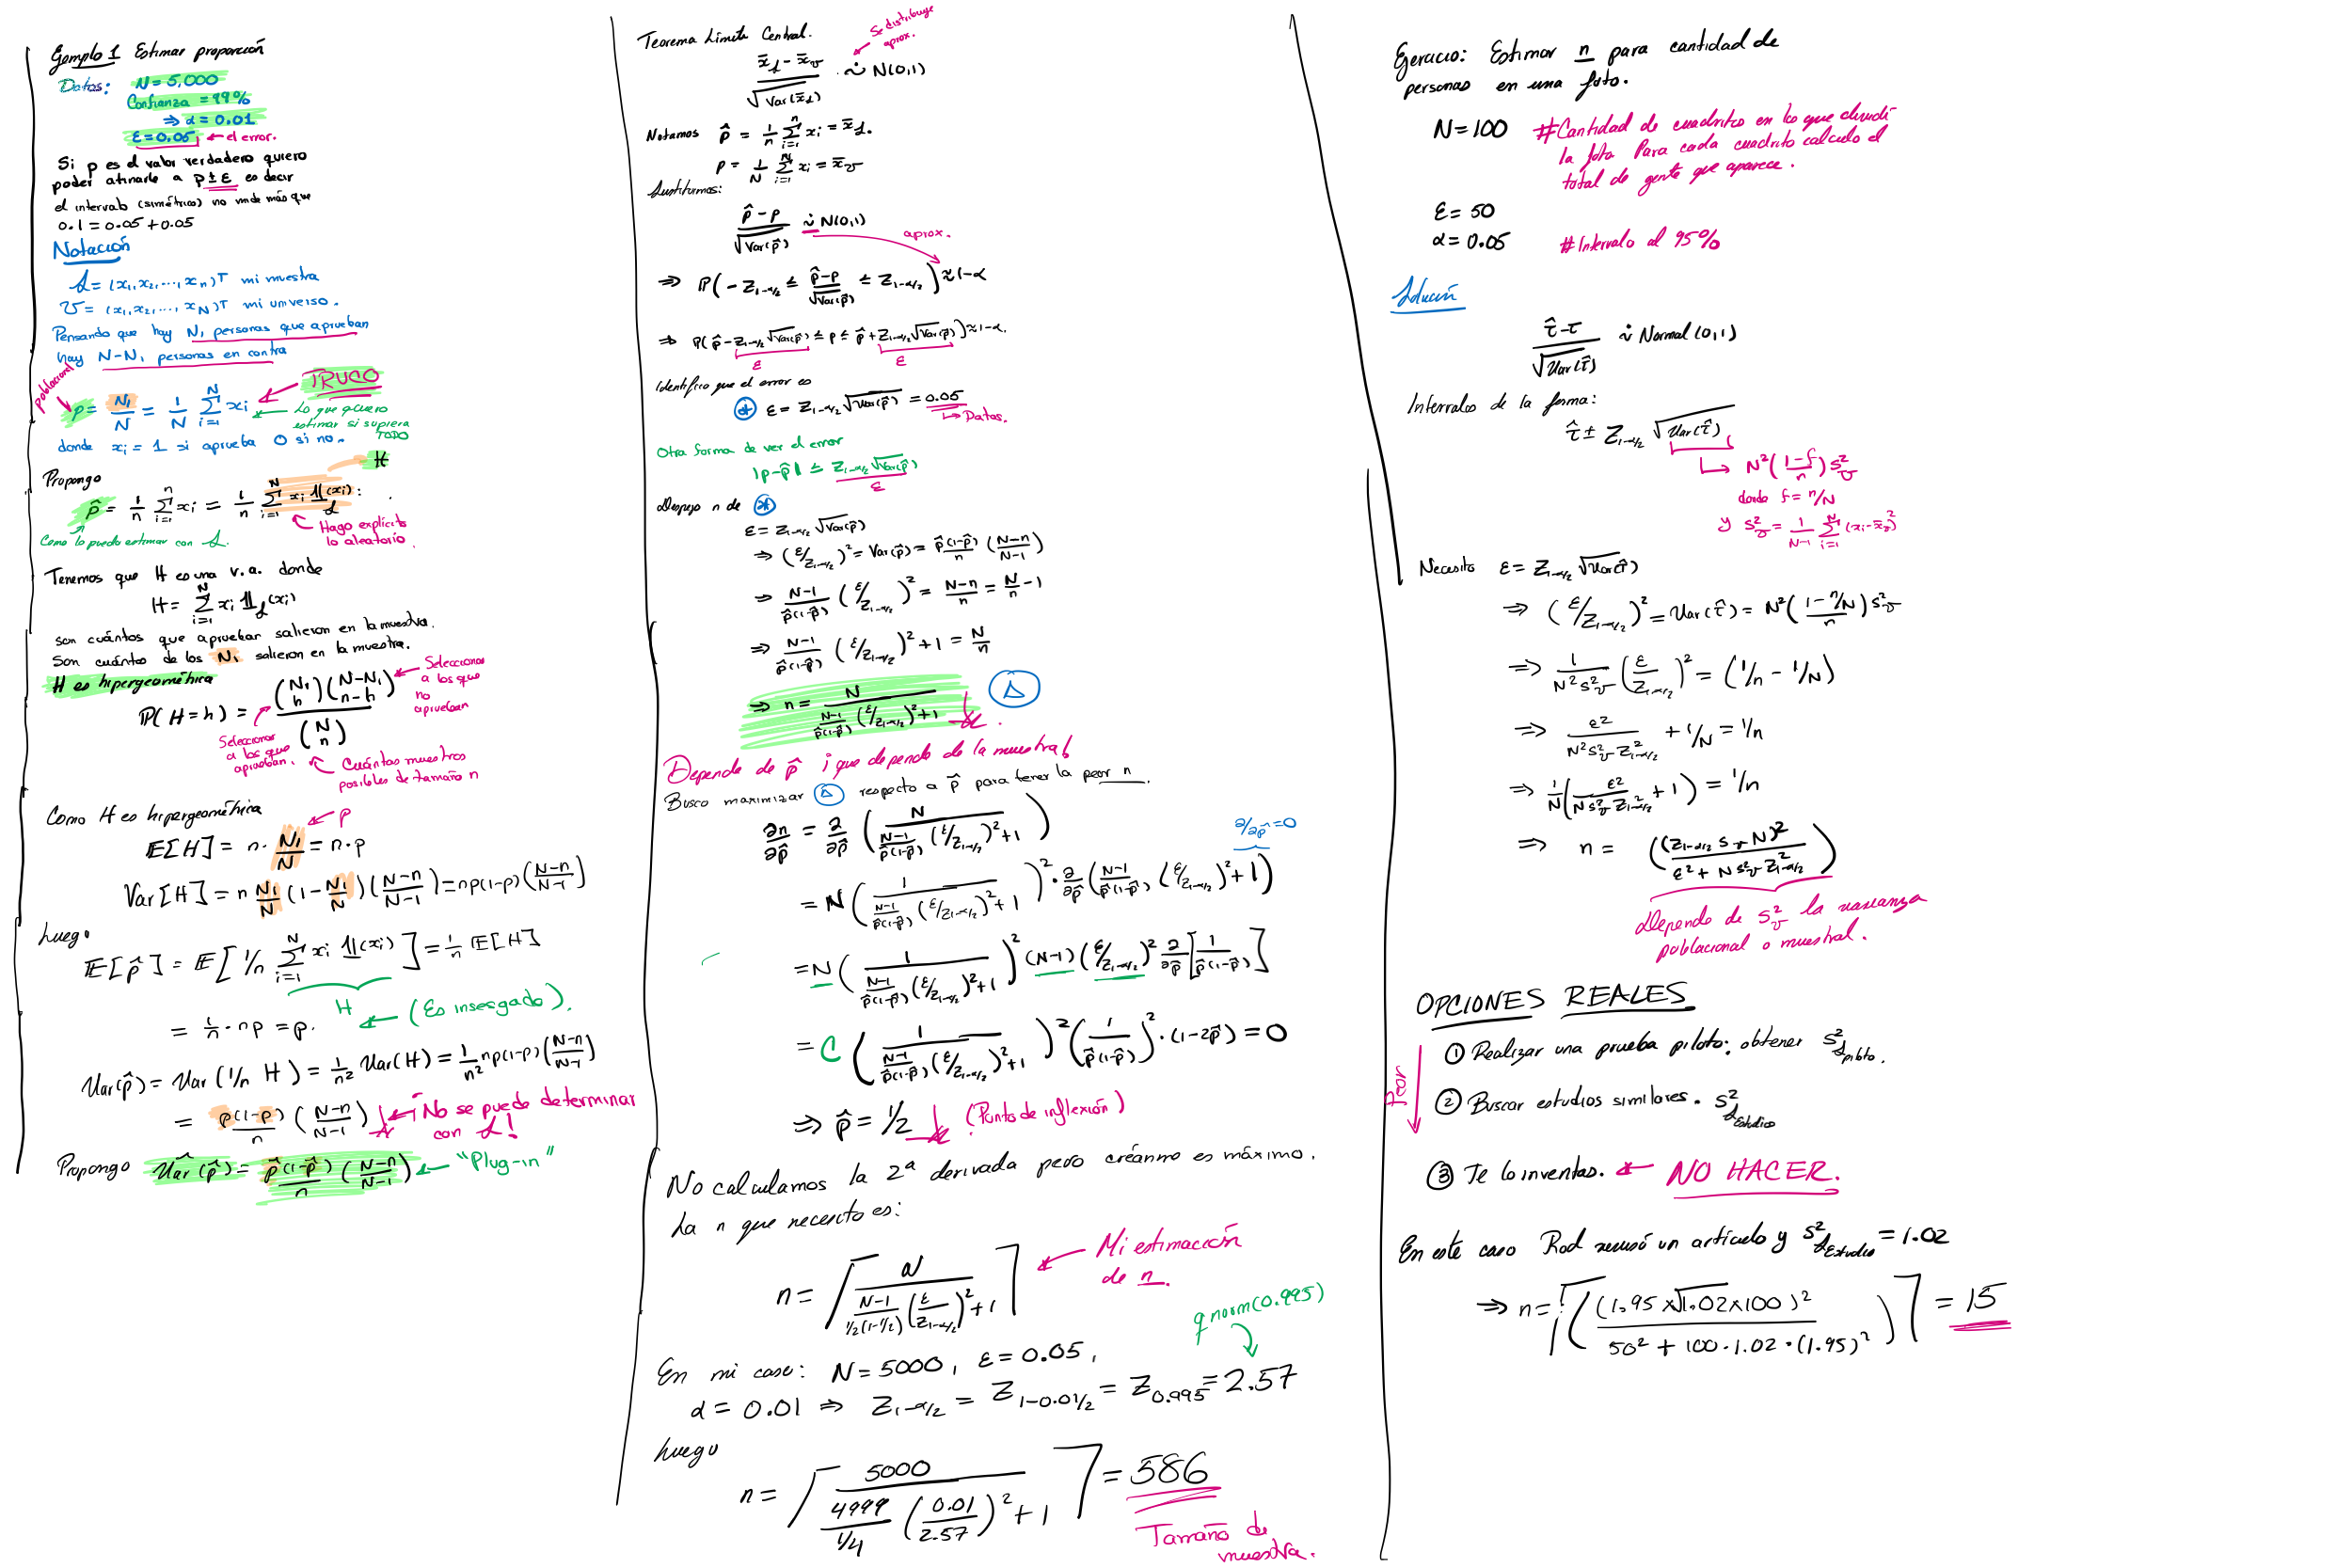 Ejemplo 1 Estimar proporción
Datos: N = 5,000
Confianza = 99%
⇒ α = 0.01
ε = 0.05 ← el error.
Si p es el valor verdadero quiero
poder atinarle a p ± ε es decir
el intervalo (simétrico) no mide más que
0.1 = 0.05 + 0.05
Notación
𝒮 = (x₁, x₂, ..., xₙ)ᵀ mi muestra
U = (x₁, x₂, ..., x_N)ᵀ mi universo.
Pensando que hay N₁ personas que aprueban
hay N-N₁ personas en contra
Poblacional
p = N₁/N = 1/N Σ_{i=1}^{N} xᵢ ← TRUCO
← Lo que quiero
estimar si supiera
TODO
donde xᵢ = 1 si aprueba 0 si no.
Propongo
H
p̂ = 1/n Σ_{i=1}^{n} xᵢ = 1/n Σ_{i=1}^{N} xᵢ 𝟙_𝒮(xᵢ)
Como lo puedo estimar con 𝒮.
Hago explícito
lo aleatorio.
Tenemos que H es una v.a. donde
H = Σ_{i=1}^{N} xᵢ 𝟙_𝒮(xᵢ)
son cuántos que aprueban salieron en la muestra.
Son cuántos de los N₁ salieron en la muestra.
H es hipergeométrica
ℙ(H = h) = (N₁ h)(N-N₁ n-h) / (N n)
Seleccionar
a los que
no
aprueban
Seleccionar
a los que
aprueban.
Cuántas muestras
posibles de tamaño n
Como H es hipergeométrica
← p
𝔼[H] = n · N₁/N = n·p
Var[H] = n N₁/N (1 - N₁/N)((N-n)/(N-1)) = np(1-p)((N-n)/(N-1))
Luego
𝔼[p̂] = 𝔼[1/n Σ_{i=1}^{N} xᵢ 𝟙(xᵢ)] = 1/n 𝔼[H]
H
= 1/n · np = p. ← (Es insesgado).
Var(p̂) = Var(1/n H) = 1/n² Var(H) = 1/n² np(1-p)((N-n)/(N-1))
= p(1-p)/n ((N-n)/(N-1)) ← ¡No se puede determinar
con 𝒮!
Propongo Var̂(p̂) = p̂(1-p̂)/n ((N-n)/(N-1)) ← "Plug-in"
Teorema Límite Central.
Se distribuye
aprox.
(x̄_𝒮 - x̄_U)/√Var(x̄_𝒮) ∼̇ N(0,1)
Notamos p̂ = 1/n Σ_{i=1}^{n} xᵢ = x̄_𝒮.
p = 1/N Σ_{i=1}^{N} xᵢ = x̄_U
Sustituimos:
(p̂ - p)/√Var(p̂) ∼̇ N(0,1)
aprox.
⇒ ℙ(-Z_{1-α/2} ≤ (p̂-p)/√Var(p̂) ≤ Z_{1-α/2}) ≈ 1-α
⇒ ℙ(p̂ - Z_{1-α/2}√Var(p̂) ≤ p ≤ p̂ + Z_{1-α/2}√Var(p̂)) ≈ 1-α.
ε ε
Identifico que el error es
⊛ ε = Z_{1-α/2}√Var(p̂) = 0.05
↳ Datos.
Otra forma de ver el error
|p - p̂| ≤ Z_{1-α/2}√Var(p̂)
ε
Despejo n de ⊛
ε = Z_{1-α/2}√Var(p̂)
⇒ (ε/Z_{1-α/2})² = Var(p̂) = p̂(1-p̂)/n ((N-n)/(N-1))
⇒ (N-1)/(p̂(1-p̂)) (ε/Z_{1-α/2})² = (N-n)/n = N/n - 1
⇒ (N-1)/(p̂(1-p̂)) (ε/Z_{1-α/2})² + 1 = N/n
⇒ n = N / ((N-1)/(p̂(1-p̂)) (ε/Z_{1-α/2})² + 1) Δ
Depende de p̂ ¡que depende de la muestra!
Busco maximizar Δ respecto a p̂ para tener la peor n.
∂n/∂p̂ = ∂/∂p̂ (N / ((N-1)/(p̂(1-p̂)) (ε/Z_{1-α/2})² + 1))
∂/∂p̂ = 0
= N (1 / ((N-1)/(p̂(1-p̂)) (ε/Z_{1-α/2})² + 1))² · ∂/∂p̂ ((N-1)/(p̂(1-p̂)) (ε/Z_{1-α/2})² + 1)
= N (1 / ((N-1)/(p̂(1-p̂)) (ε/Z_{1-α/2})² + 1))² (N-1)(ε/Z_{1-α/2})² ∂/∂p̂ [1/(p̂(1-p̂))]
= C (1 / ((N-1)/(p̂(1-p̂)) (ε/Z_{1-α/2})² + 1))² (1/(p̂(1-p̂)))² · (1-2p̂) = 0
⇒ p̂ = 1/2 (Punto de inflexión)
No calculamos la 2ª derivada pero créanme es máximo.
La n que necesito es:
n = ⌈N / ((N-1)/(1/2(1-1/2)) (ε/Z_{1-α/2})² + 1)⌉ ← Mi estimación
de n.
qnorm(0.995)
En mi caso: N = 5000, ε = 0.05,
α = 0.01 ⇒ Z_{1-α/2} = Z_{1-0.01/2} = Z_{0.995} = 2.57
Luego
n = ⌈5000 / (4999/(1/4) (0.01/2.57)² + 1)⌉ = 586
Tamaño de
muestra.
Ejercicio: Estimar n para cantidad de
personas en una foto.
N = 100 #Cantidad de cuadritos en los que dividí
la foto Para cada cuadrito calculo el
total de gente que aparece.
ε = 50
α = 0.05 #Intervalo al 95%
Solución
(τ̂ - τ)/√Var(τ̂) ∼̇ Normal(0,1)
Intervalos de la forma:
τ̂ ± Z_{1-α/2} √Var(τ̂)
↳ N²((1-f)/n) S²_U
donde f = n/N
y S²_U = 1/(N-1) Σ_{i=1}^{N} (xᵢ - x̄_U)²
Necesito ε = Z_{1-α/2}√Var(τ̂)
⇒ (ε/Z_{1-α/2})² = Var(τ̂) = N²((1-n/N)/n) S²_U
⇒ 1/(N²S²_U) (ε/Z_{1-α/2})² = (1/n - 1/N)
⇒ ε²/(N²S²_U Z²_{1-α/2}) + 1/N = 1/n
⇒ 1/N(ε²/(N S²_U Z²_{1-α/2}) + 1) = 1/n
⇒ n = ((Z_{1-α/2} S_U N)² / (ε² + N S²_U Z²_{1-α/2}))
Depende de S²_U la varianza
poblacional o muestral.
OPCIONES REALES
Peor
① Realizar una prueba piloto: obtener S²_{𝒮piloto}.
② Buscar estudios similares. S²_{𝒮Estudio}
③ Te lo inventas. ← NO HACER.
En este caso Rod revisó un artículo y S²_{𝒮Estudio} = 1.02
⇒ n = ⌈((1.95 × √1.02 × 100)² / (50² + 100 · 1.02 · (1.95)²))⌉ = 15